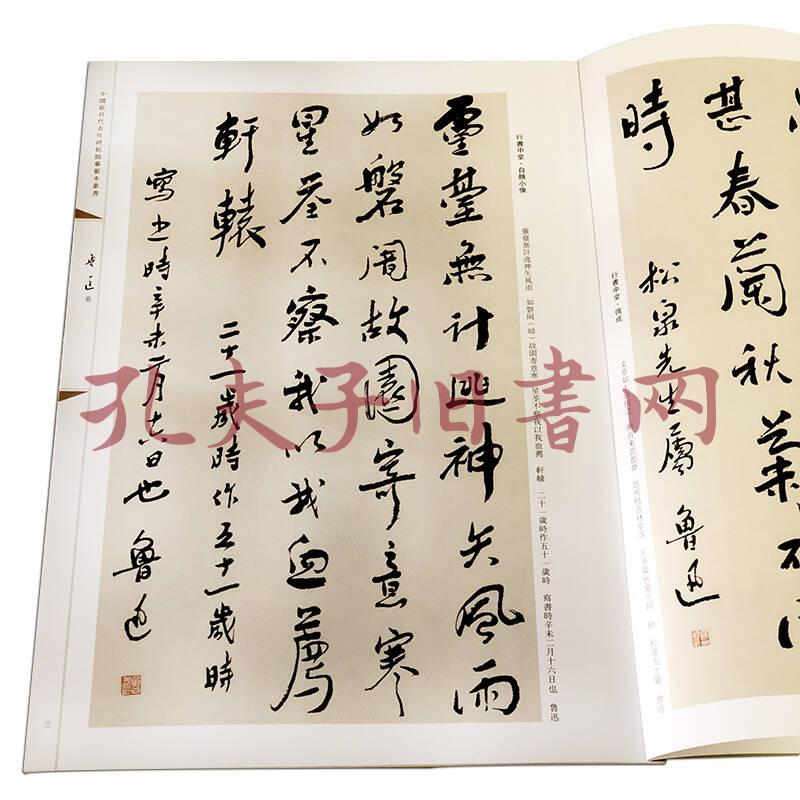 靈臺無計逃神矢風雨
如磐闇故園寄意寒
星荃不察我以我血薦
軒轅
二十一歲時作五十一歲時
寫之時辛未二月十六日也 魯迅
行書中堂·自題小像
靈臺無計逃神矢風雨 如磐闇(暗)故園寄意寒 星荃不察我以我血薦 軒轅 二十一歲時作五十一歲時 寫書時辛未二月十六日也 魯迅
中國最具代表性碑帖臨摹範本叢書
魯迅 卷
三
甚春蘭秋
時
松泉先生屬 魯迅
行書中堂·偶成
孔夫子旧书网